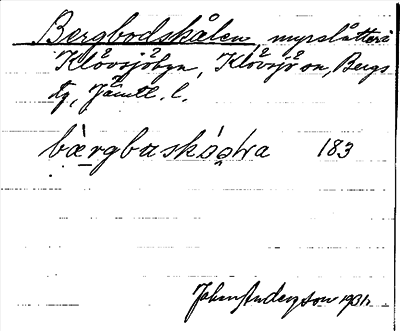 Bergbodskålen, myrslåtter i
Klövsjöbyn, Klövsjö sn, Bergs
tg, Jämtl. l.
bærgbuskɷɷḷra 183
John Anderson 1931.